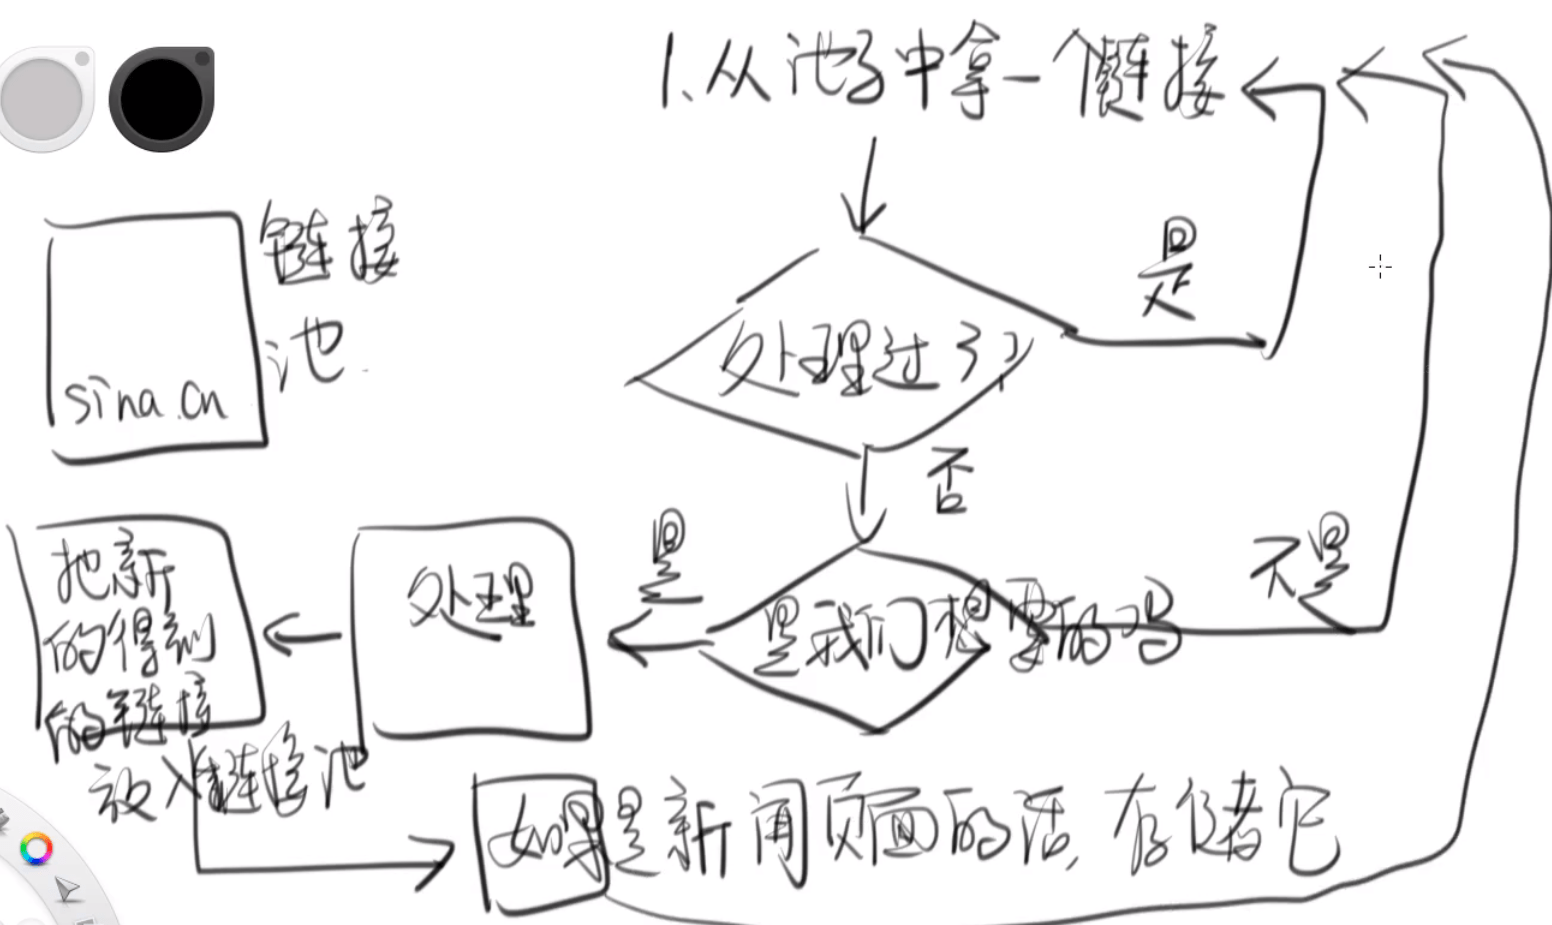 1、从池子中拿一个链接
链接
池
sina.cn
是
处理过了?
否
是
不是
是我们想要的吗
处理
把新
的得到
的链接
放入链接池
如果是新闻页面的话,存储它